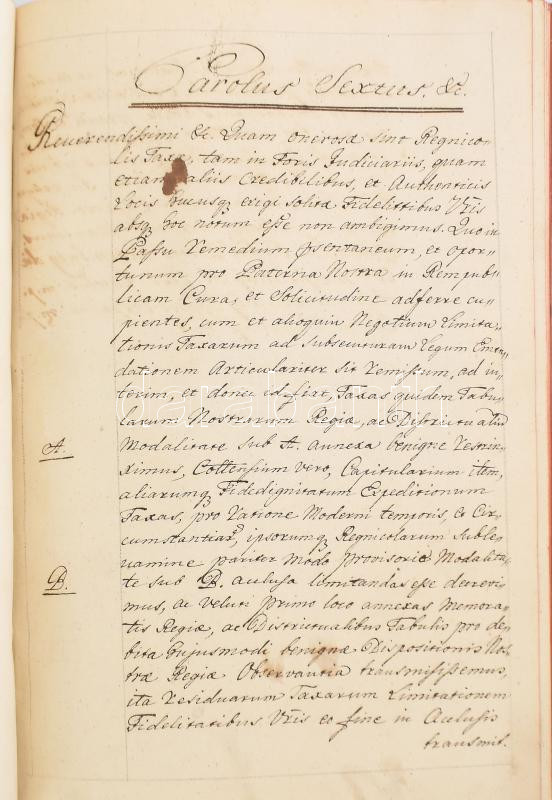 Carolus Sextus. &c.
Reverendissimi &c. Quam onerosæ sint Regnico„
lis Taxæ, tam in Foris Judiciariis, quam
etiam aliis Credibilibus, et Authenticis
Locis hucusq exigi solitæ Fidelitibus Vris
absq hoc notum esse non ambigimus. Quo in
Passu Remedium psentaneum, et opor„
tunum pro Paterna Nostra in Rempub„
licam Cura, et Solicitudine adferre cu„
pientes, cum et alioquin Negotium Limita„
tionis Taxarum ad subsecuturam Legum Emen„
dationem Articulariter sit remissum, ad in„
terim, et donec id fiat, Taxas quidem Tabu„
larum Nostrarum Regiæ, ac Districtualiu
A.
Modalitate sub A. annexa benigne restrin„
ximus, Conventium vero, Capitularium item,
aliarumq Fidedignitatum Expeditionum
Taxas, pro ratione Moderni temporis, et Cir„
cumstantiar, ipsorumq Regnicolarum suble„
vamine pariter modo provisorio Modalita„
B.
te sub B. aclusa limitandas esse decrevi„
mus, ac veluti primo loco annexas memora„
tis Regiæ, ac Districtualibus Tabulis pro de„
bita hujusmodi benignæ Dispositionis Nos„
træ Regiæ Observantia transmisissemus,
ita residuarum Taxarum Limitationem
Fidelitatibus Vris eo fine in Aclusis
transmit.